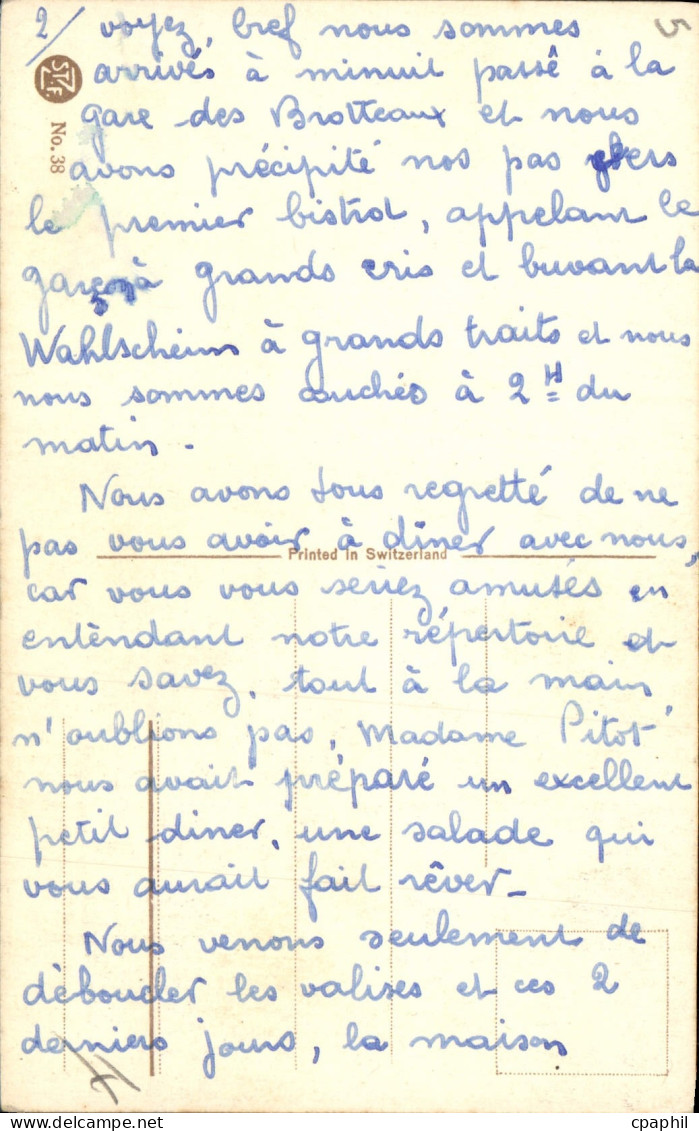 2/ voyez, bref nous sommes
5
arrivés à minuit passé à la
gare des Brotteaux et nous
avons précipité nos pas vers
le premier bistrot, appelant le
garçon à grands cris et buvant la
Wahlscheim à grands traits et nous
nous sommes couchés à 2 H du
matin.
Nous avons tous regretté de ne
pas vous avoir à dîner avec nous,
Printed in Switzerland
car vous vous seriez amusés en
entèndant notre répertoire et
vous savez, tout à la main
n'oublions pas, Madame Pitot
nous avait préparé un excellent
petit diner, une salade qui
vous aurait fait rêver_
Nous venons seulement de
déboucler les valises et ces 2
derniers jours, la maison
4
STZF
No. 38
cpaphil